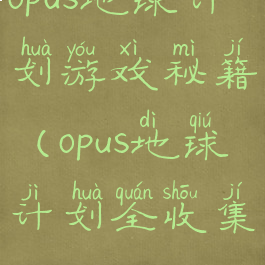 opus地球计
huà yóu xì mì jí
划游戏秘籍
dì qiú
(opus地球
jì huà quán shōu jí
计划全收集